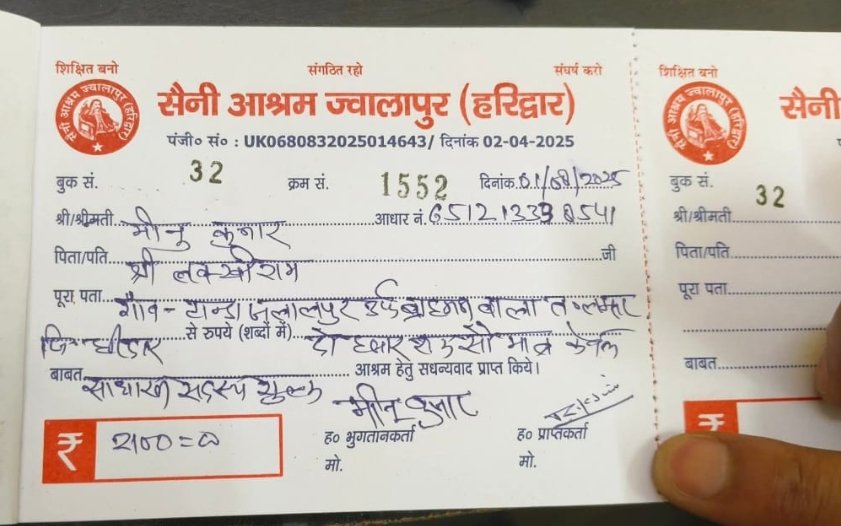 शिक्षित बनो संगठित रहो संघर्ष करो
सैनी आश्रम ज्वालापुर (हरिद्वार)
सैनी आश्रम ज्वालापुर (हरिद्वार)
पंजी० सं० : UK0680832025014643/ दिनांक 02-04-2025
बुक सं. 32 क्रम सं. 1552 दिनांक. 01/08/2025
श्री/श्रीमती मीनु कुमार आधार नं.
पिता/पति श्री लक्खीराम जी
पूरा पता गाँव - टान्डा जलालपुर उर्फ वाला त०
जि० से रुपये (शब्दों में) दो हजार सौ मात्र केवल
बाबत साधारण सदस्य शुल्क आश्रम हेतु सधन्यवाद प्राप्त किये।
मीनु कुमार
₹
ह० भुगतानकर्ता ह० प्राप्तकर्ता
मो. मो.
शिक्षित बनो
सैनी
बुक सं. 32
श्री/श्रीमती
पिता/पति
पूरा पता
बाबत
₹